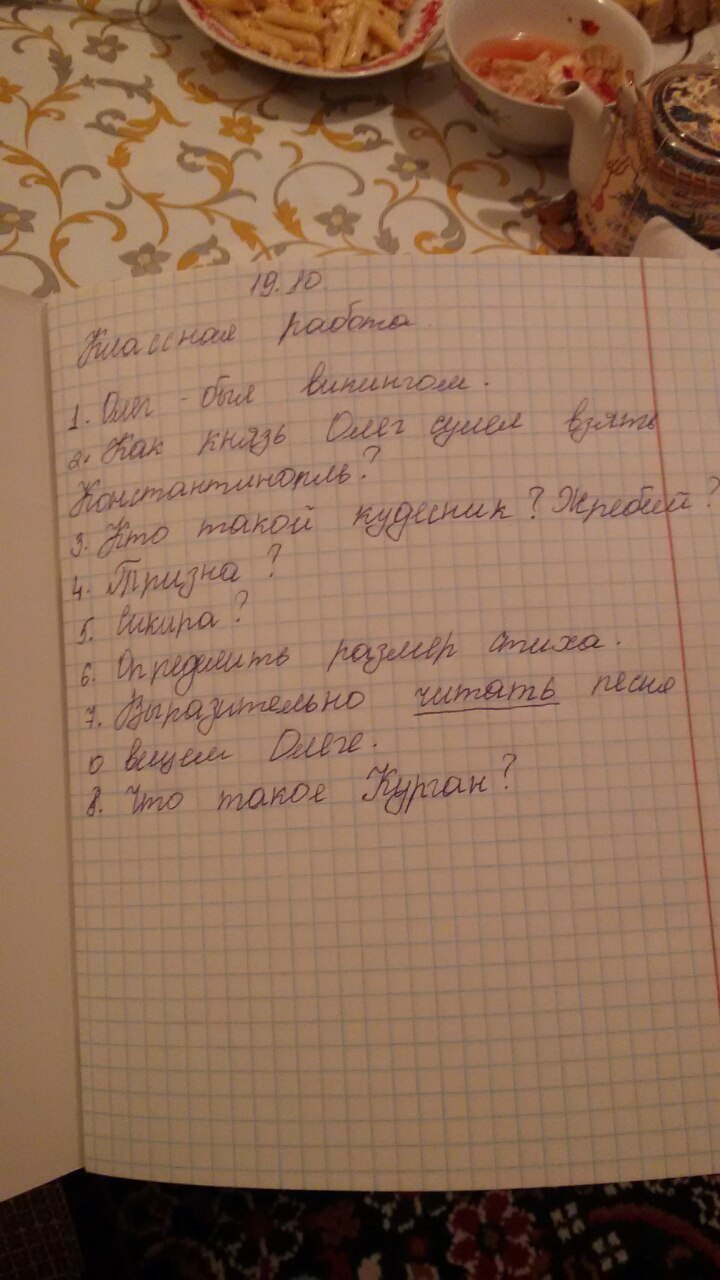 19.10.
Классная работа
1. Олег - был викингом.
2. Как князь Олег сумел взять
Константинопль?
3. Кто такой кудесник? Жребий?
4. Тризна?
5. Сикира?
6. Определить размер стиха.
7. Выразительно читать песня
о вещем Олеге.
8. Что такое Курган?